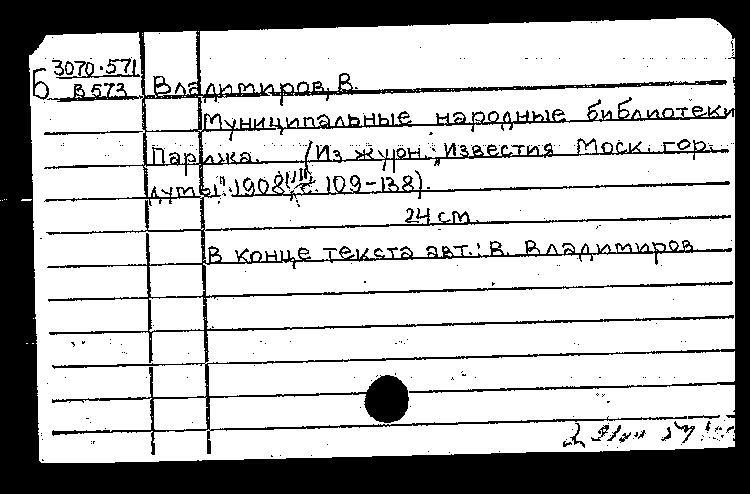 Б 3070.571
В573 Владимиров, В.
Муниципальные народные библиотеки
Парижа. (Из журн. „Известия Моск. гор.
думы". 1908, с. 109-138).
24 см.
В конце текста авт.: В. Владимиров